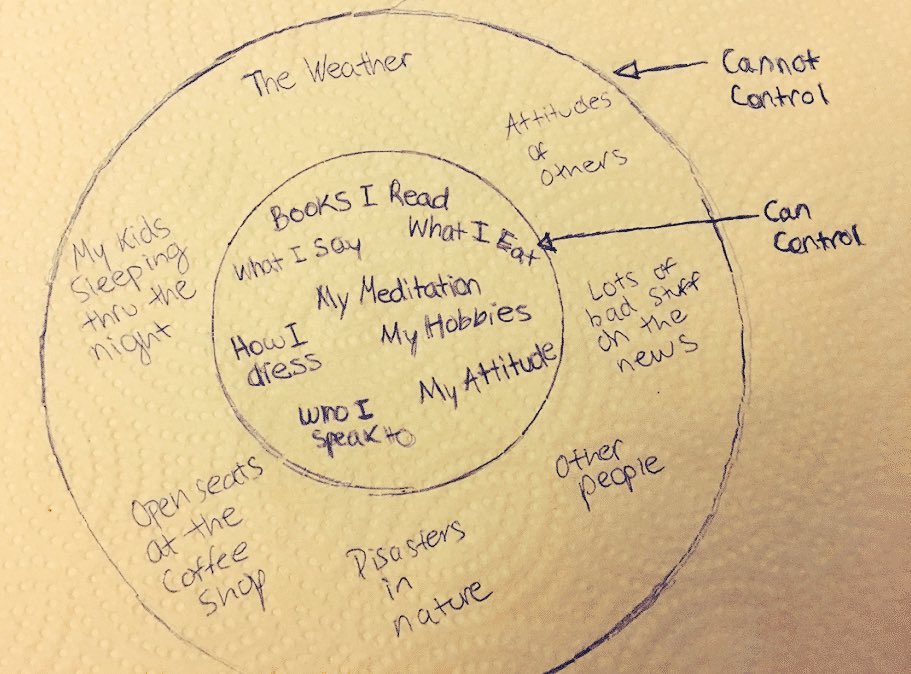 The Weather
Cannot
Control
Attitudes
of
others
Can
Control
Books I Read
What I Eat
What I Say
My Meditation
My Hobbies
How I
dress
My Attitude
Who I
speak to
My Kids
Sleeping
thru the
night
Lots of
bad stuff
on the
news
Other
people
Open seats
at the
Coffee
Shop
Disasters
in
nature